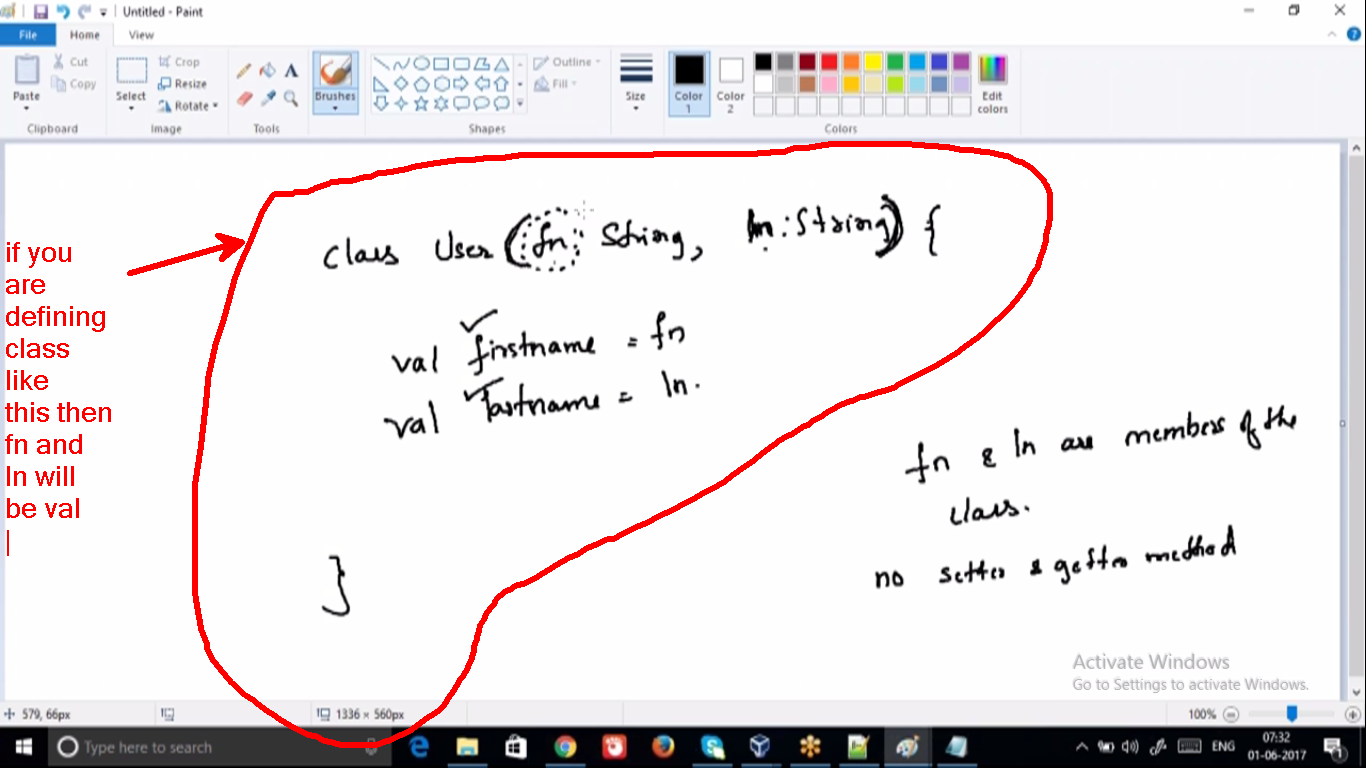 Untitled - Paint
File Home View
Paste Cut Copy
Clipboard
Select Crop Resize Rotate
Image
Tools
Brushes
Outline Fill
Shapes
Size
Color 1
Color 2
Edit colors
Colors
if you
are
defining
class
like
this then
fn and
ln will
be val
class User (fn: String, ln: String) {
val firstname = fn
val lastname = ln.
}
fn & ln are members of the
class.
no setter & getter method
Activate Windows
Go to Settings to activate Windows.
579, 66px
1336 × 560px
100%
Type here to search
ENG
07:32
01-06-2017